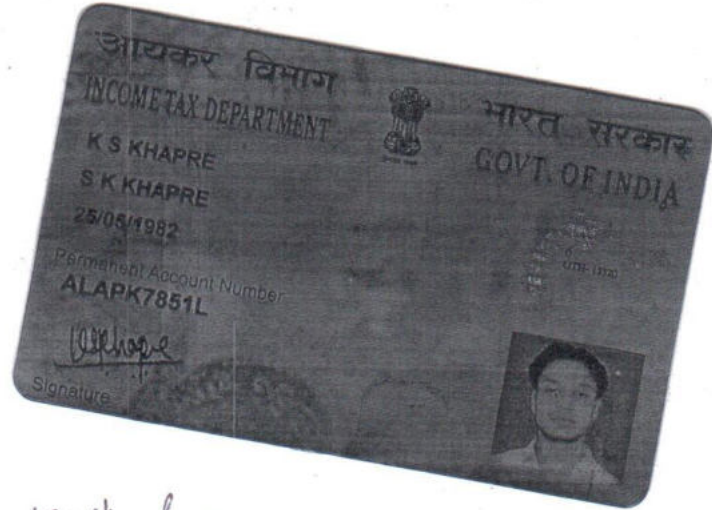 आयकर विभाग
INCOME TAX DEPARTMENT
भारत सरकार
GOVT. OF INDIA
K S KHAPRE
S K KHAPRE
25/05/1982
Permanent Account Number
ALAPK7851L
Signature